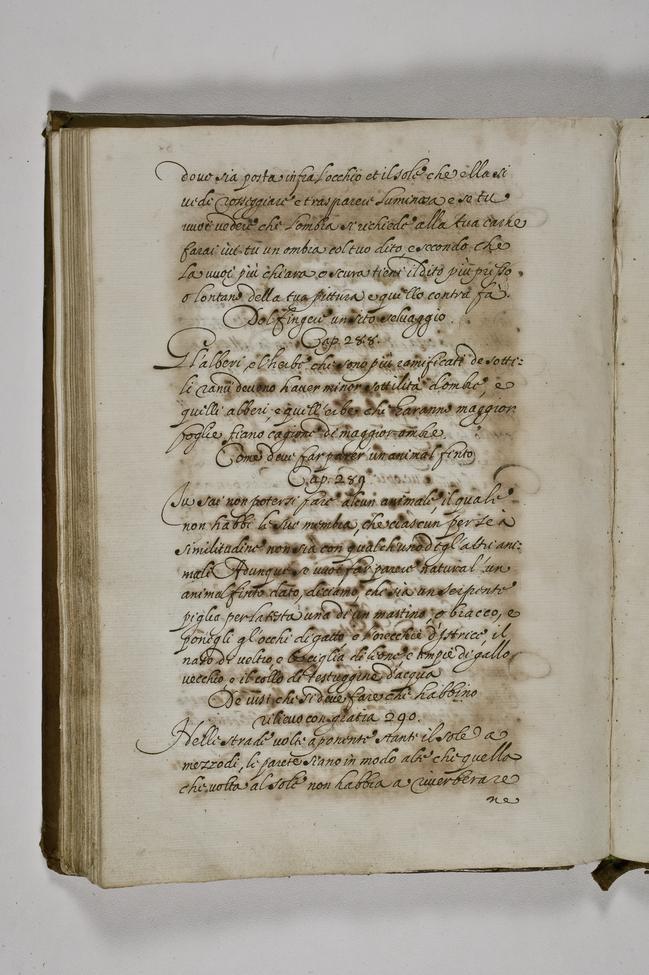 dove sia posta infra l'occhio et il sole che ella si
vede rosseggiare e trasparere luminosa e se tu
vuoi vedere che l'ombra si richiede alla tua carne
farai iui tu un ombra col tuo dito, e secondo che
la vuoi più chiara o scura tieni il dito più presso,
o lontano della tua pittura e quello contra fà.
Del fingere un sito seluaggio.
Cap. 288.
Gl'alberi, e l'herbe che sono più ramificati de sotti-
li rami deveno haver minor sottilità d'ombre, e
quelli alberi, e quell'erbe che haranno maggior
foglie fiano cagione di maggior ombre.
Come deve far parer un animal finto
Cap. 289
Tu sai non potersi fare alcun animale il quale
non habbi le sue membra, che ciascun per se a
similitudine non sia con qualch'uno degl'altri ani-
mali Adunque se vuoi far parere natural un
animal finto dato, diciamo, che sia un serpente
piglia per la testa una di un mastino, o bracco, e
ponegli gl'occhi di gatto e l'orecchie d'Istrice, il
naso di veltro e le ciglia di lione e tempie di gallo
vecchio e il collo di testuggine d'acqua
De visi che si deve fare che habbino
rilievo con gratia 290.
Nelle strade volte a ponente stante il sole a
mezzodì, le parete siano in modo alte che quella
che volta al sole non habbia a riverberare
ne